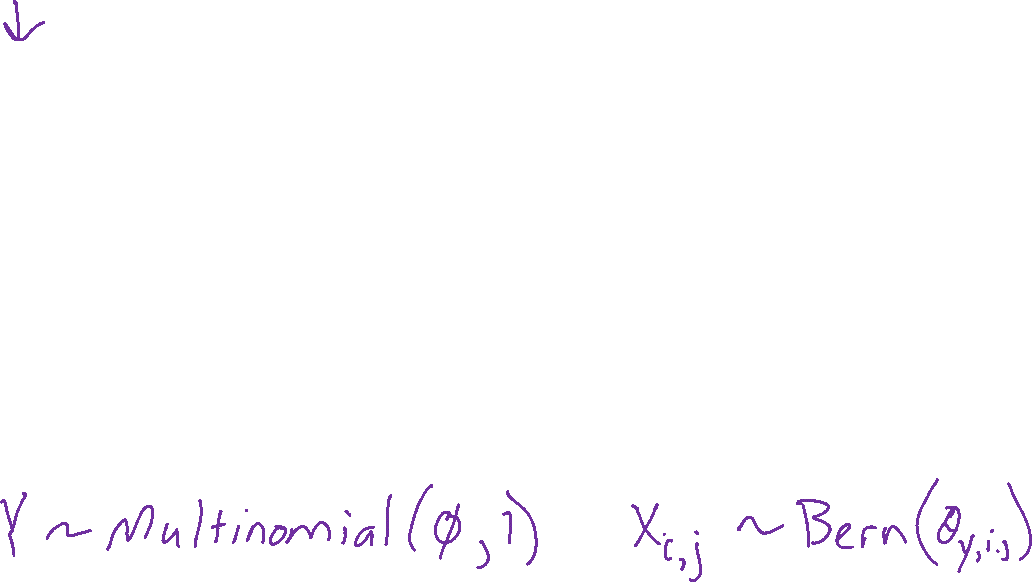 ↓
Y ~ Multinomial(φ, 1) X_{i,j} ~ Bern(θ_{y,i,j})